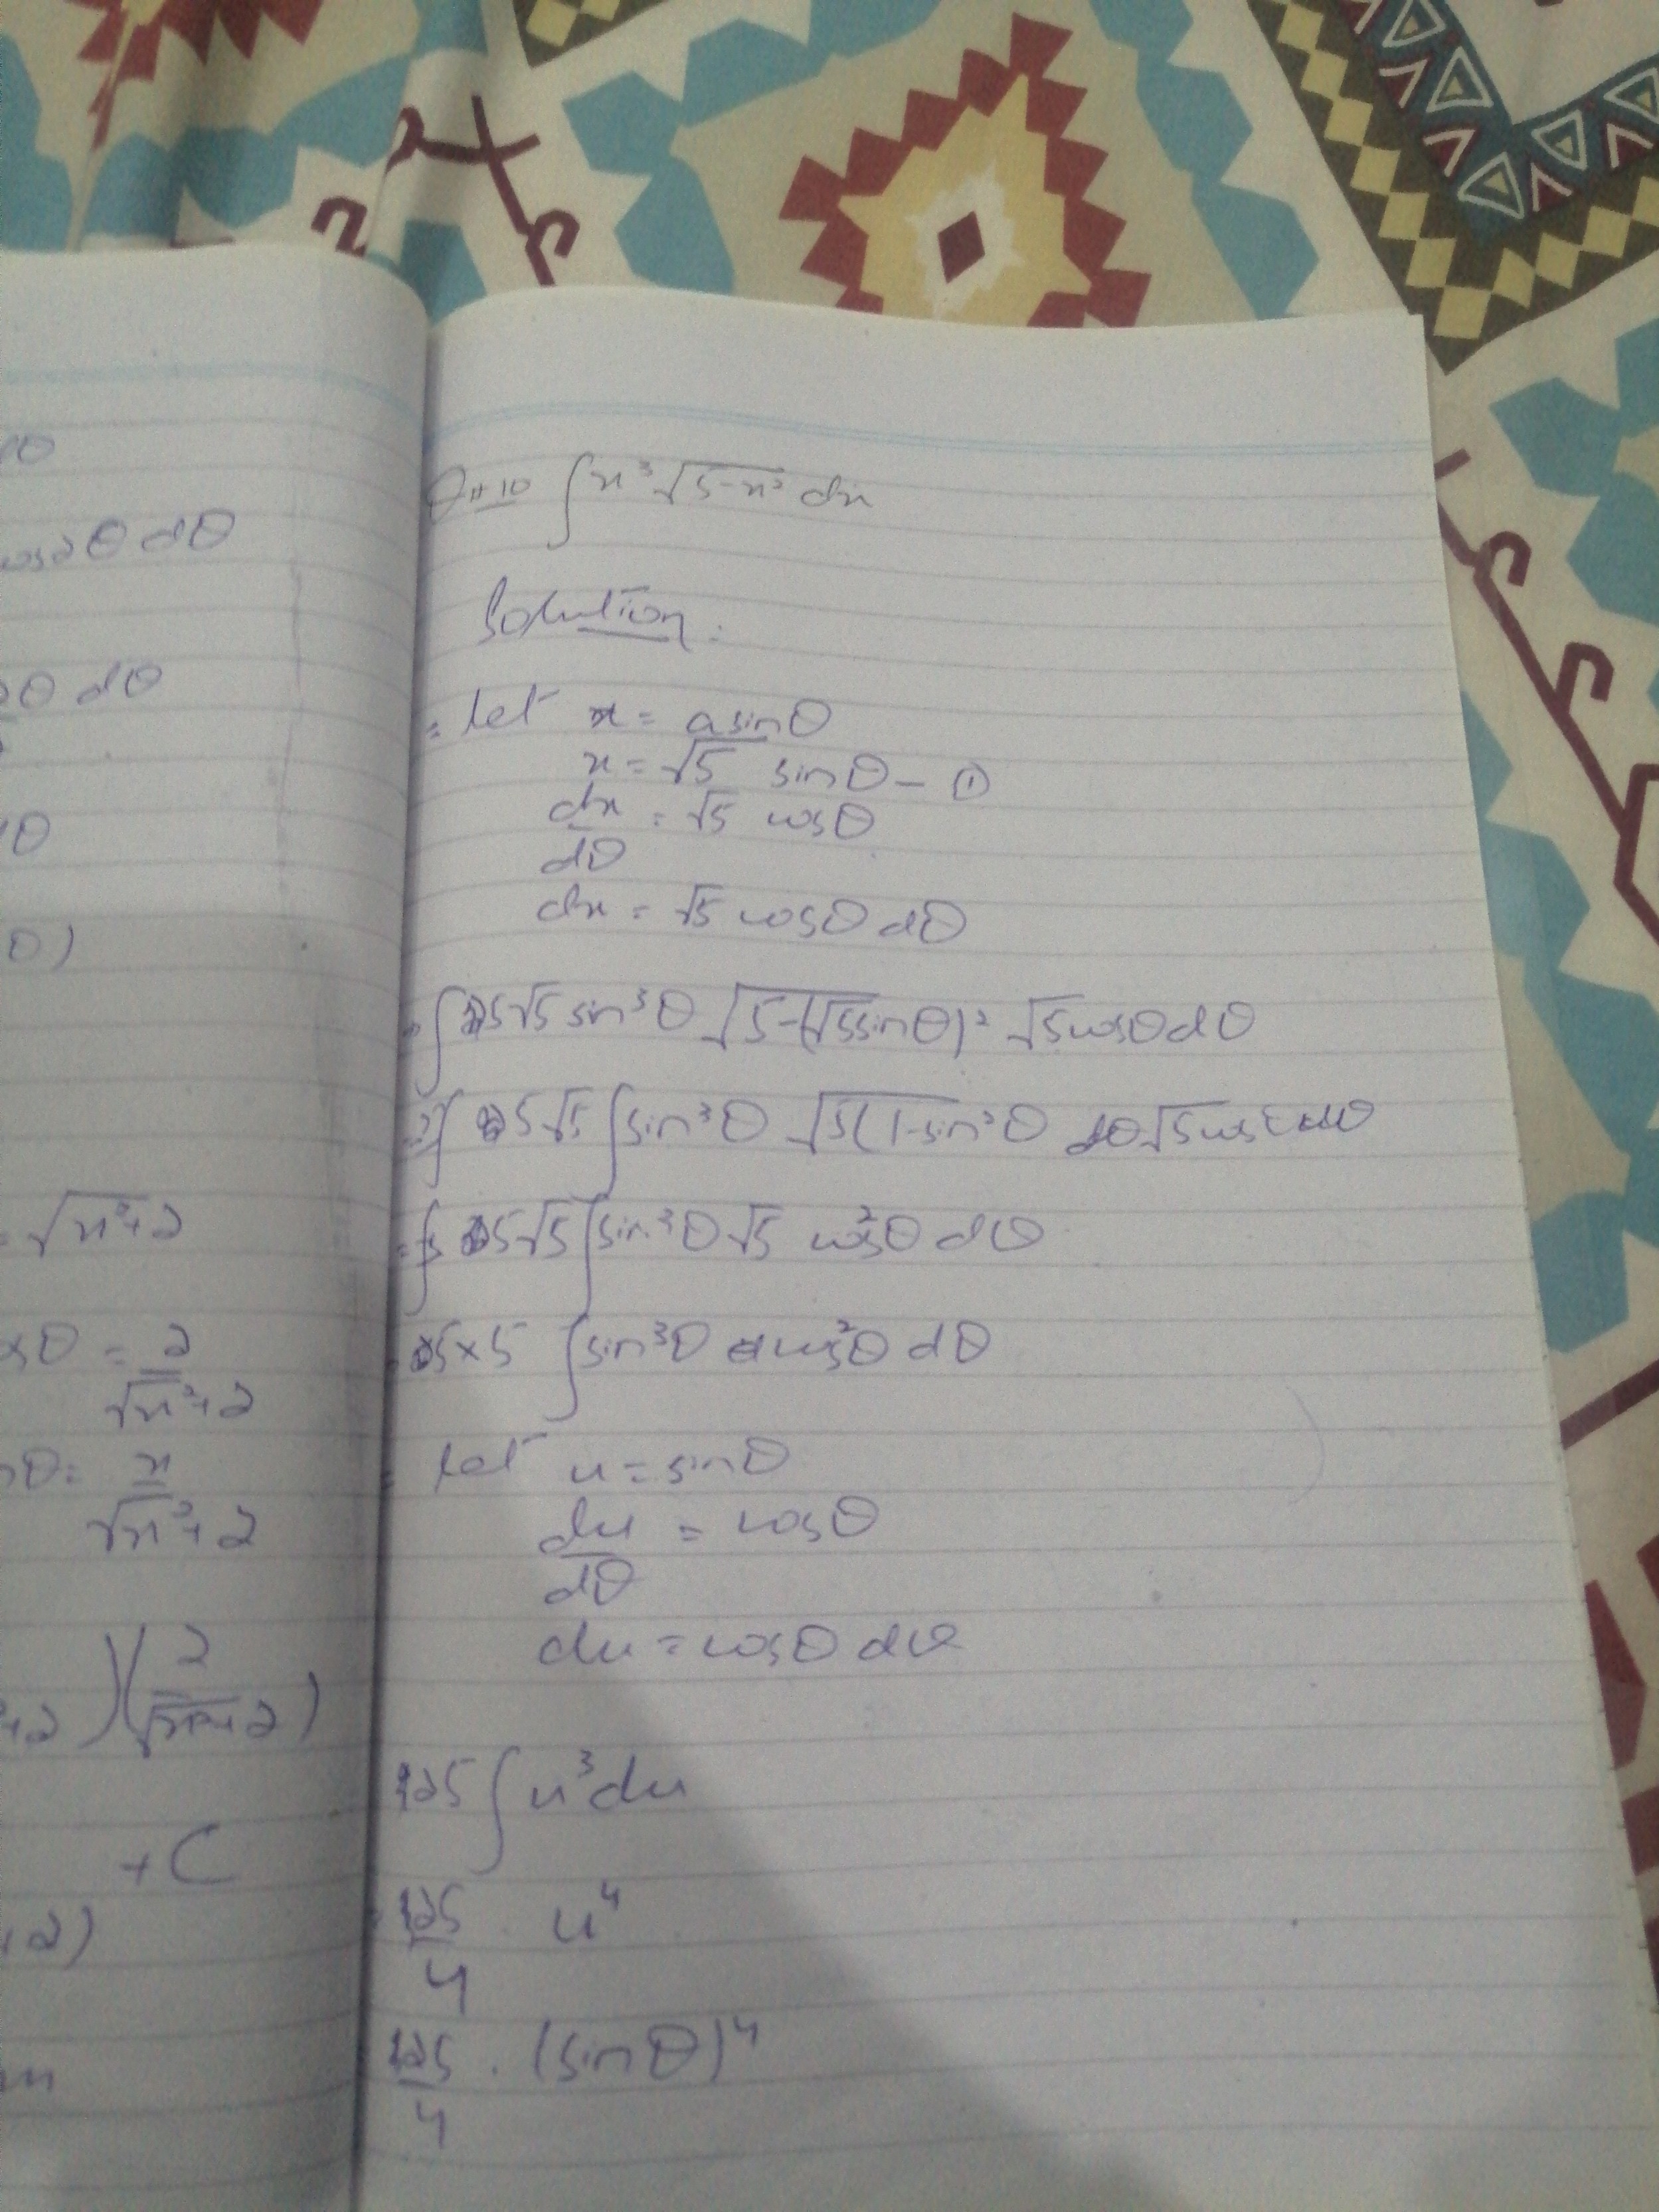 10
cos2θ dθ
2θ dθ
1θ
θ)
= √x²+2
sθ = 2/√x²+2
nθ = x/√x²+2
+2)(2/√x²+2)
+ C
+2)
Q#10 ∫x³√5-x² dx
Solution:
= let x = a sinθ
x = √5 sinθ — ①
dx/dθ = √5 cosθ
dx = √5 cosθ dθ
= ∫5√5 sin³θ √5-(√5sinθ)² √5cosθ dθ
= 5√5 ∫sin³θ √5(1-sin²θ √5cosθ dθ
= 5√5 ∫sin³θ √5 cos²θ dθ
= 5×5 ∫sin³θ cos²θ dθ
= let u = sinθ
du/dθ = cosθ
du = cosθ dθ
125 ∫u³du
= 125/4 . u⁴
125/4 . (sinθ)⁴